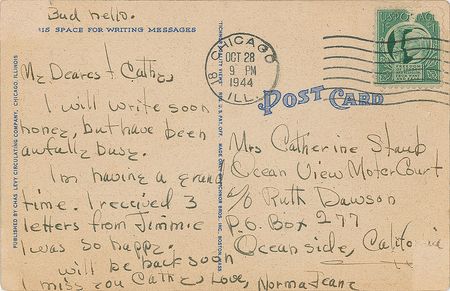 Bud hello.
THIS SPACE FOR WRITING MESSAGES
My Dearest Cathy,
I will write soon
honey, but have been
awfully busy.
Im having a grand
time. I received 3
letters from Jimmie
I was so happy.
will be back soon
I miss you Cathy Love, Norma Jeane
PUBLISHED BY CHAS. LEVY CIRCULATING COMPANY, CHICAGO, ILLINOIS
CHICAGO
OCT 28
9 PM
1944
ILL.
U.S. POSTAGE
POST CARD
Mrs Catherine Staub
Ocean View Motor Court
c/o Ruth Dawson
P.O. Box 277
Oceanside, California